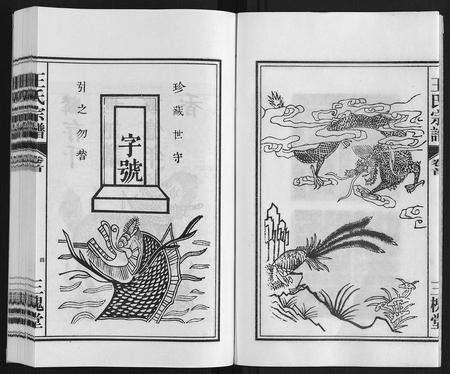 珍藏世守
字號
引之勿替
王氏宗譜
卷首
三槐堂
王氏宗譜
卷首
三槐堂